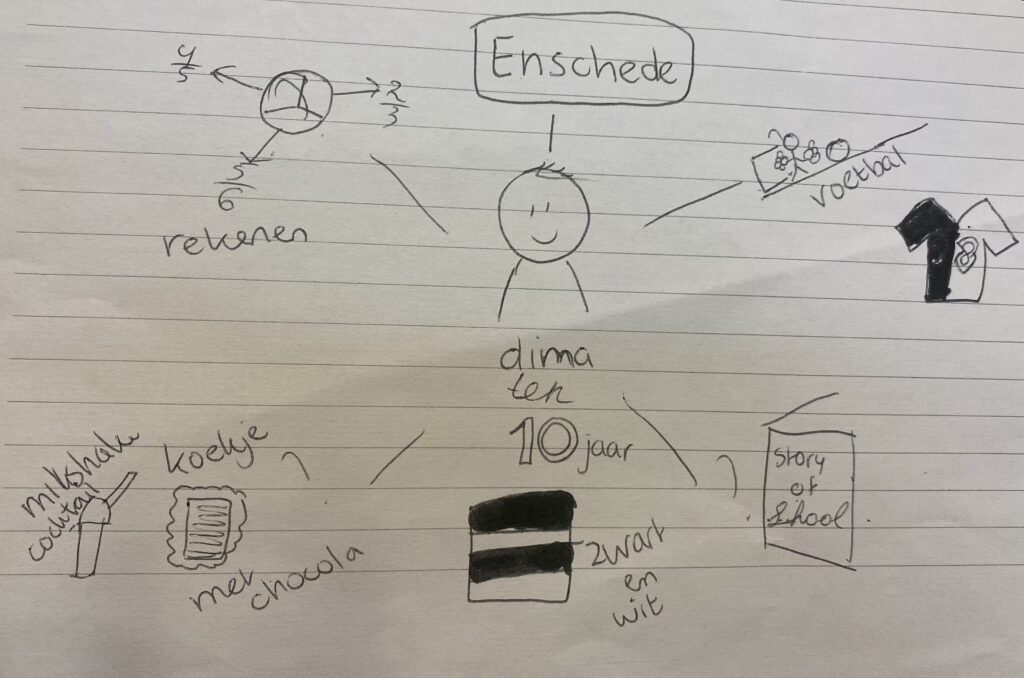 Enschede
4/5
2/3
5/6
rekenen
voetbal
18
dima
ten
10 jaar
milkshake
cocktail
koekje
met
chocola
zwart
en
wit
Story
of
School